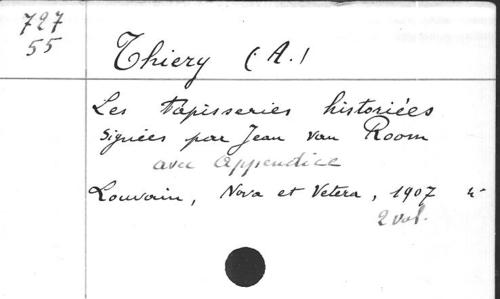 727
55
Thiery (A.)
Les tapisseries historiées
signées par Jean van Room
avec appendice
Louvain, Nova et Vetera, 1907 4°
2 vol.